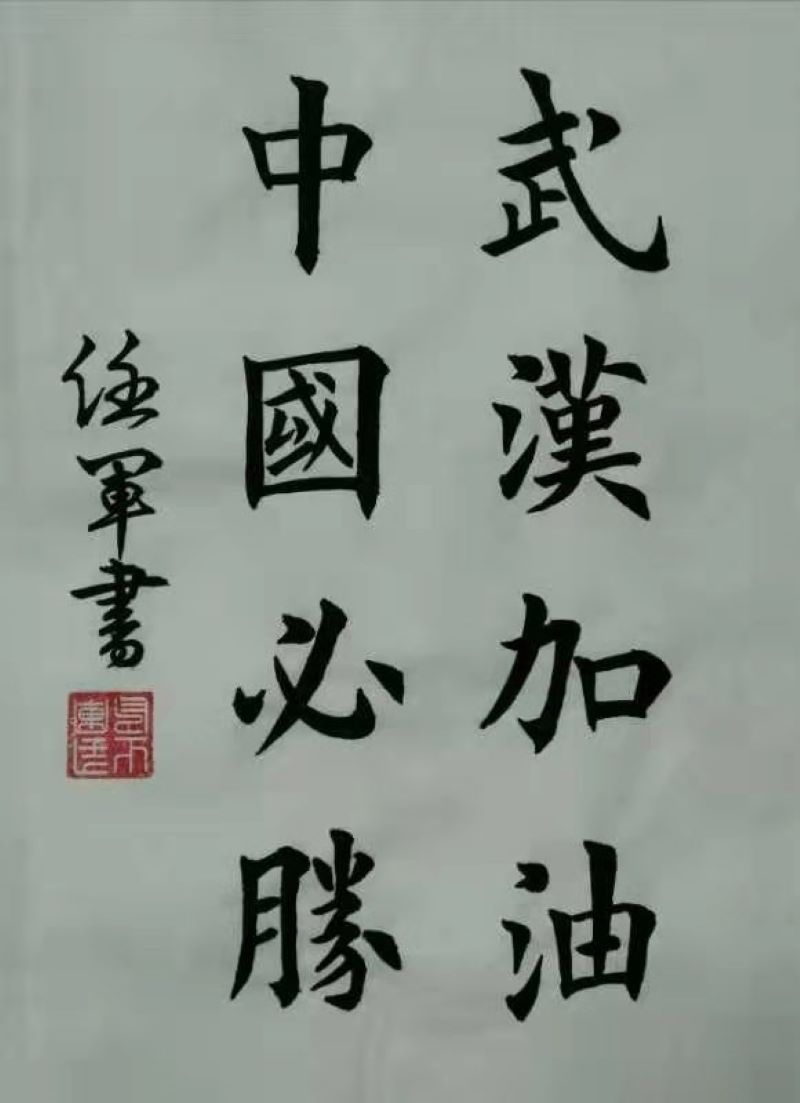 武漢加油
中國必勝
任軍書